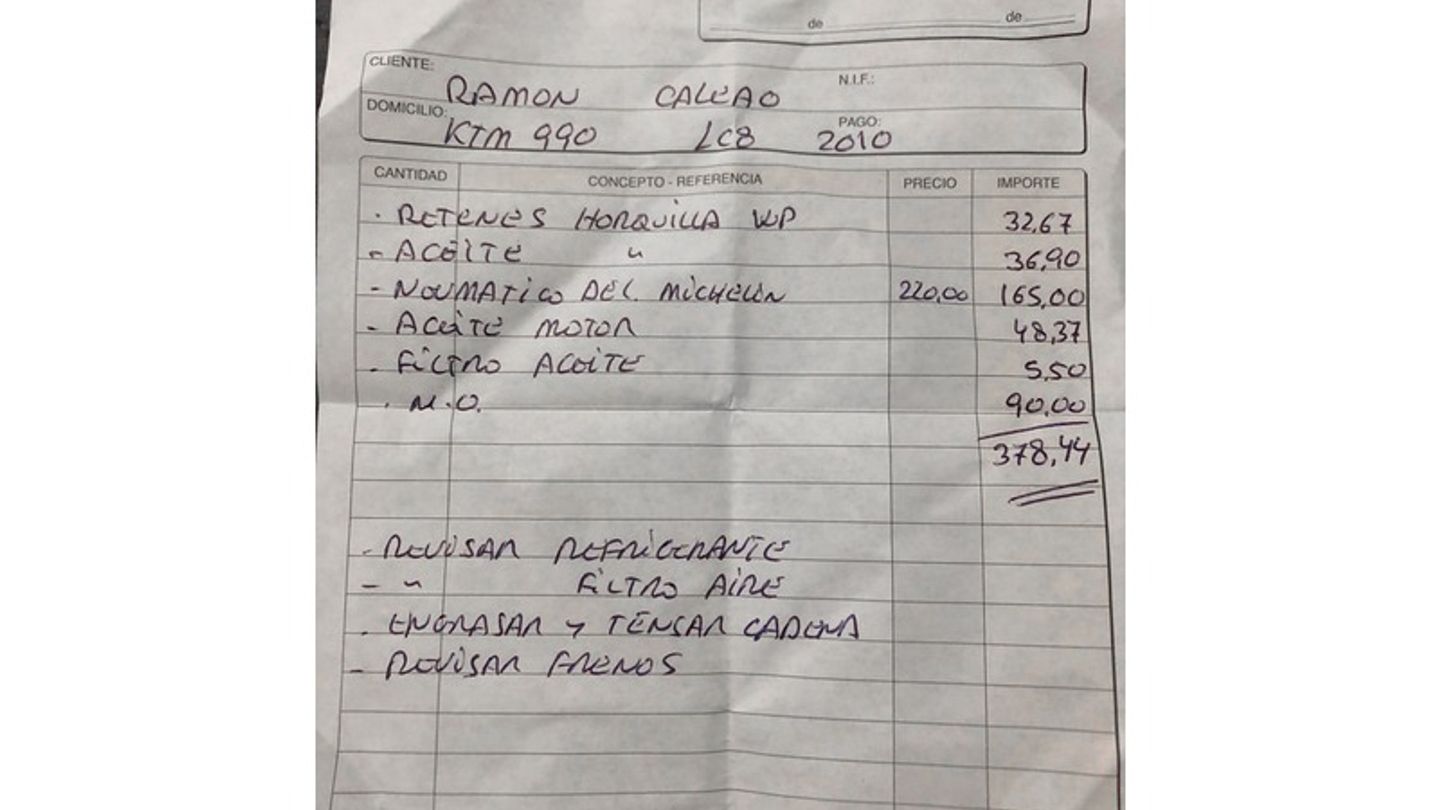 de de
CLIENTE: RAMON CALVAO N.I.F.:
DOMICILIO: KTM 990 LC8 2010 PAGO:
CANTIDAD CONCEPTO - REFERENCIA PRECIO IMPORTE
- RETENES HORQUILLA WP 32,67
- ACEITE " 36,90
- NEUMATICO DEL. MICHELIN 220,00 165,00
- ACEITE MOTOR 48,37
- FILTRO ACEITE 5,50
- M.O. 90,00
378,44
- REVISAR REFRIGERANTE
- " FILTRO AIRE
- ENGRASAR Y TENSAR CADENA
- REVISAR FRENOS